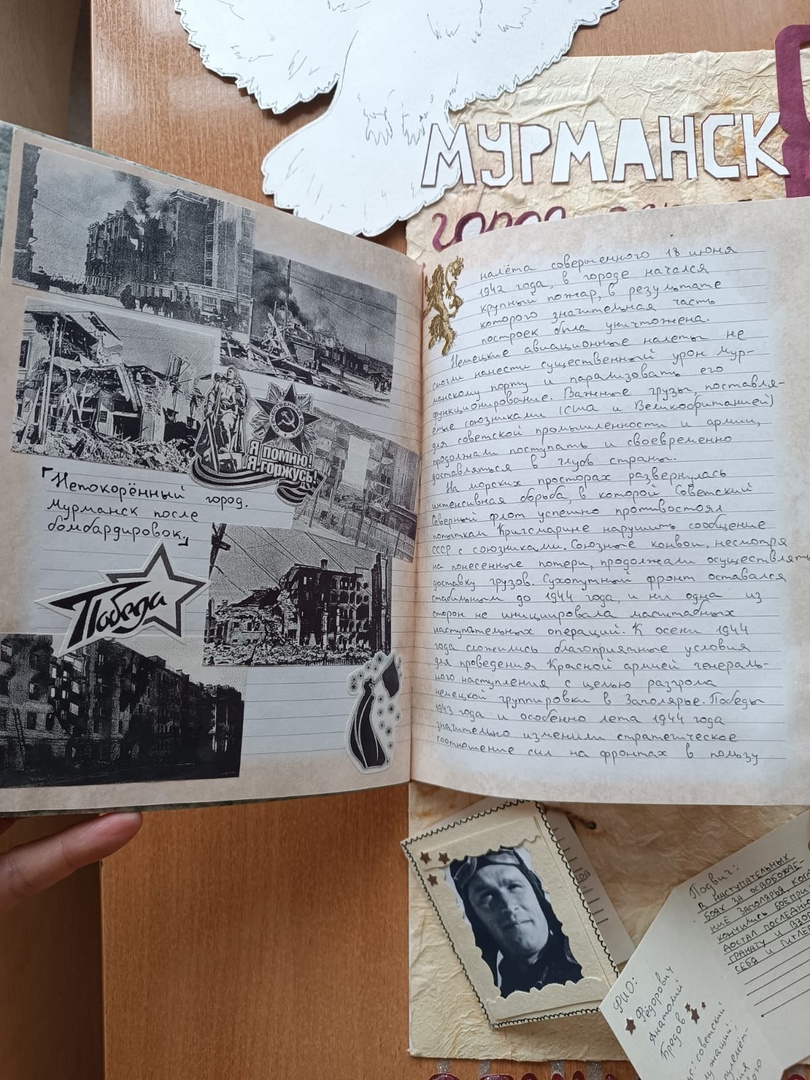 МУРМАНСК
Я ПОМНЮ!
Я ГОРЖУСЬ!
"Непокорённый город.
Мурманск после
бомбардировок"
Победа
налёта совершенного 18 июня
1942 года, в городе начался
крупный пожар, в результате
которого значительная часть
построек была уничтожена.
Немецкие авиационные налеты не
смогли нанести существенный урон мур-
манскому порту и парализовать его
функционирование. Важные грузы, поставля-
емые союзниками (США и Великобританией)
для советской промышленности и армии,
продолжали поступать и своевременно
доставляться в глубь страны.
На морских просторах развернулась
интенсивная борьба, в которой Советский
Северный флот успешно противостоял
попыткам Кригсмарине нарушить сообщение
СССР с союзниками. Союзные конвои, несмотря
на понесенные потери, продолжали осуществлять
доставку грузов. Сухопутный фронт оставался
стабильным до 1944 года, и ни одна из
сторон не инициировала масштабных
наступательных операций. К осени 1944
года сложились благоприятные условия
для проведения Красной армией генераль-
ного наступления с целью разгрома
немецкой группировки в Заполярье. Победы
1943 года и особенно лета 1944 года
значительно изменили стратегическое
соотношение сил на фронтах в пользу
Подвиг:
В НАСТУПАТЕЛЬНЫХ
БОЯХ ЗА ОСВОБОЖДЕ-
НИЕ ЗАПОЛЯРЬЯ КОГДА
КОНЧИЛИСЬ БОЕПРИ
ДОСТАЛ ПОСЛЕДНЮЮ
ГРАНАТУ И
СЕБЯ И ГИТЛЕР
ФИО:
Фёдорович
Анатолий
Бредов
советский